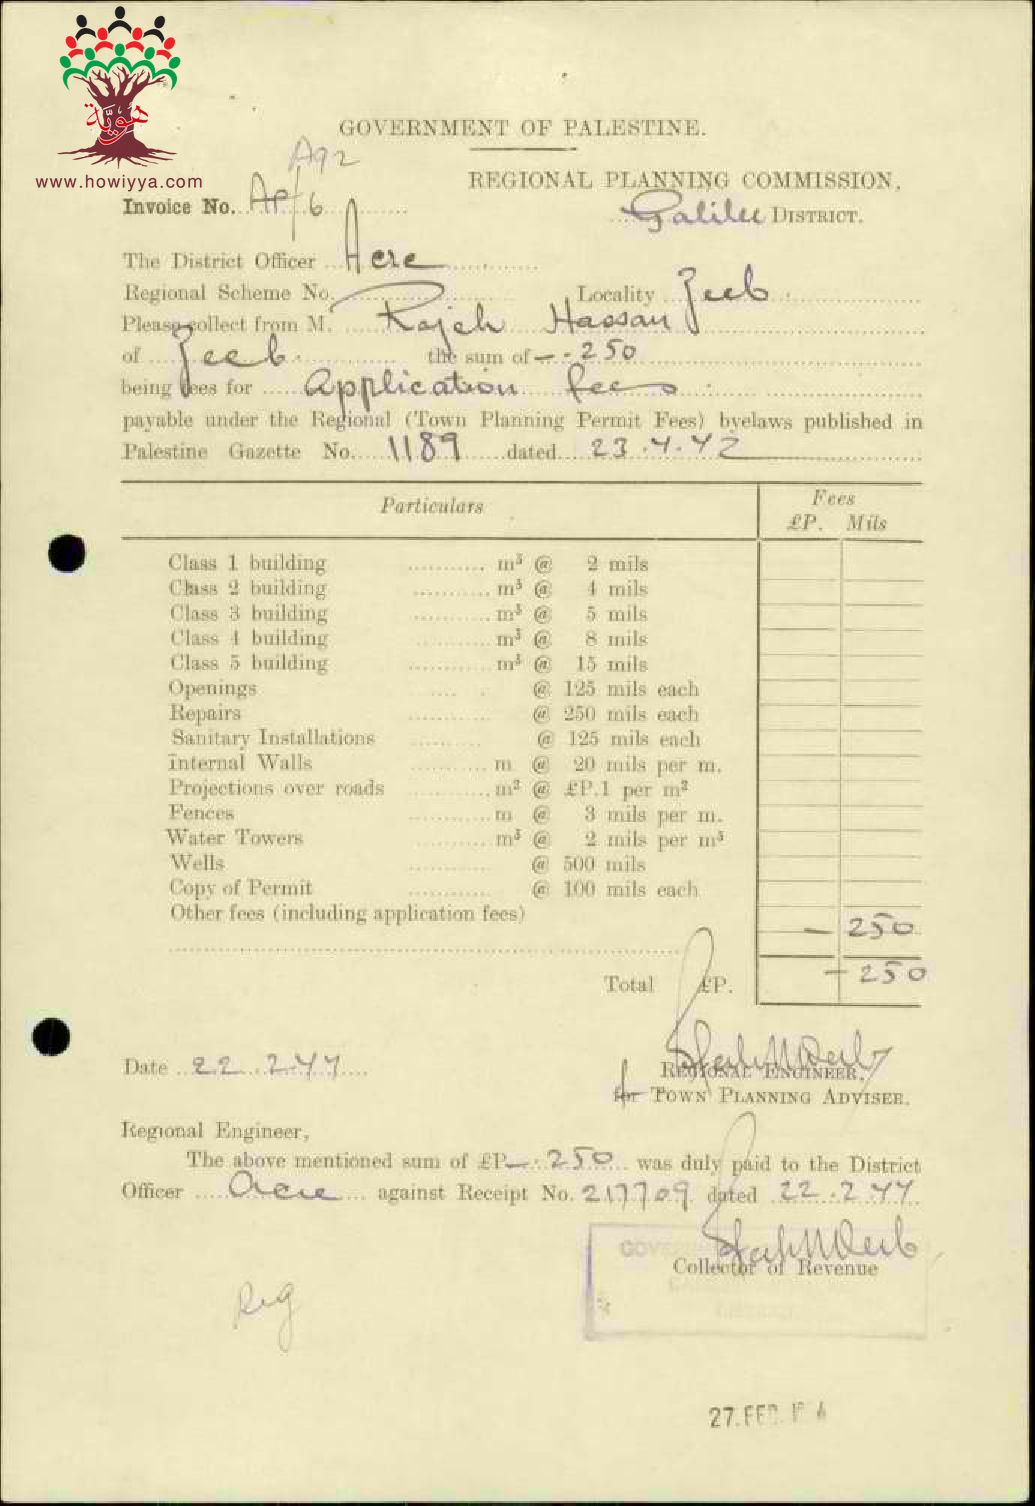 هوية
www.howiyya.com
GOVERNMENT OF PALESTINE.
A92
REGIONAL PLANNING COMMISSION,
Invoice No. AP/6
Galilee DISTRICT.
The District Officer Acre
Regional Scheme No. Locality Zeeb
Please collect from M. Rajeh Hassan
of Zeeb the sum of -.250
being fees for Application fees
payable under the Regional (Town Planning Permit Fees) byelaws published in
Palestine Gazette No. 1189 dated 23.4.42
Particulars Fees
£P. Mils
Class 1 building m³ @ 2 mils
Class 2 building m³ @ 4 mils
Class 3 building m³ @ 5 mils
Class 4 building m³ @ 8 mils
Class 5 building m³ @ 15 mils
Openings @ 125 mils each
Repairs @ 250 mils each
Sanitary Installations @ 125 mils each
Internal Walls m @ 20 mils per m.
Projections over roads m² @ £P.1 per m²
Fences m @ 3 mils per m.
Water Towers m³ @ 2 mils per m³
Wells @ 500 mils
Copy of Permit @ 100 mils each
Other fees (including application fees) - 250
Total £P. - 250
Date 22.2.44
REGIONAL ENGINEER,
for TOWN PLANNING ADVISER.
Regional Engineer,
The above mentioned sum of £P -.250 was duly paid to the District
Officer Acre against Receipt No. 217709 dated 22.2.44
Collector of Revenue
27. FEB.